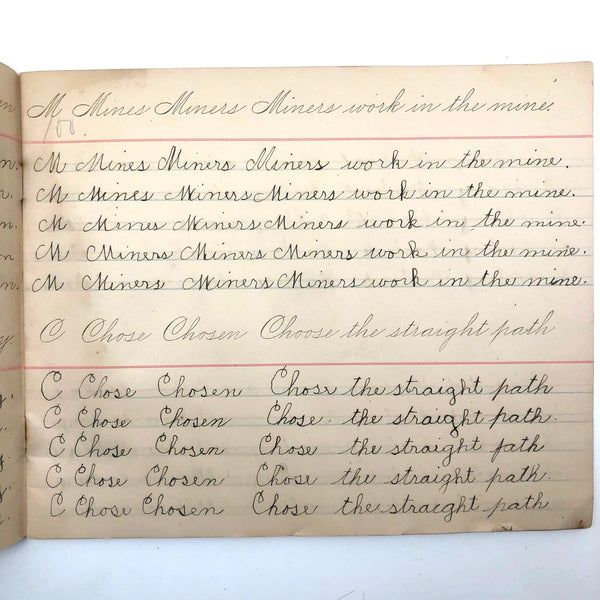 M Mines Miners Miners work in the mine.
100
M Mines Miners Miners work in the mine.
M Mines Miners Miners work in the mine.
M Mines Miners Miners work in the mine.
M Miners Miners Miners work in the mine.
M Miners Miners Miners work in the mine.
C Chose Chosen Choose the straight path
C Chose Chosen Chose the straight path
C Chose Chosen Chose. the straight path.
C Chose Chosen Chose the straight path
C Chose Chosen Chose the straight path.
C Chose Chosen Chose the straight path